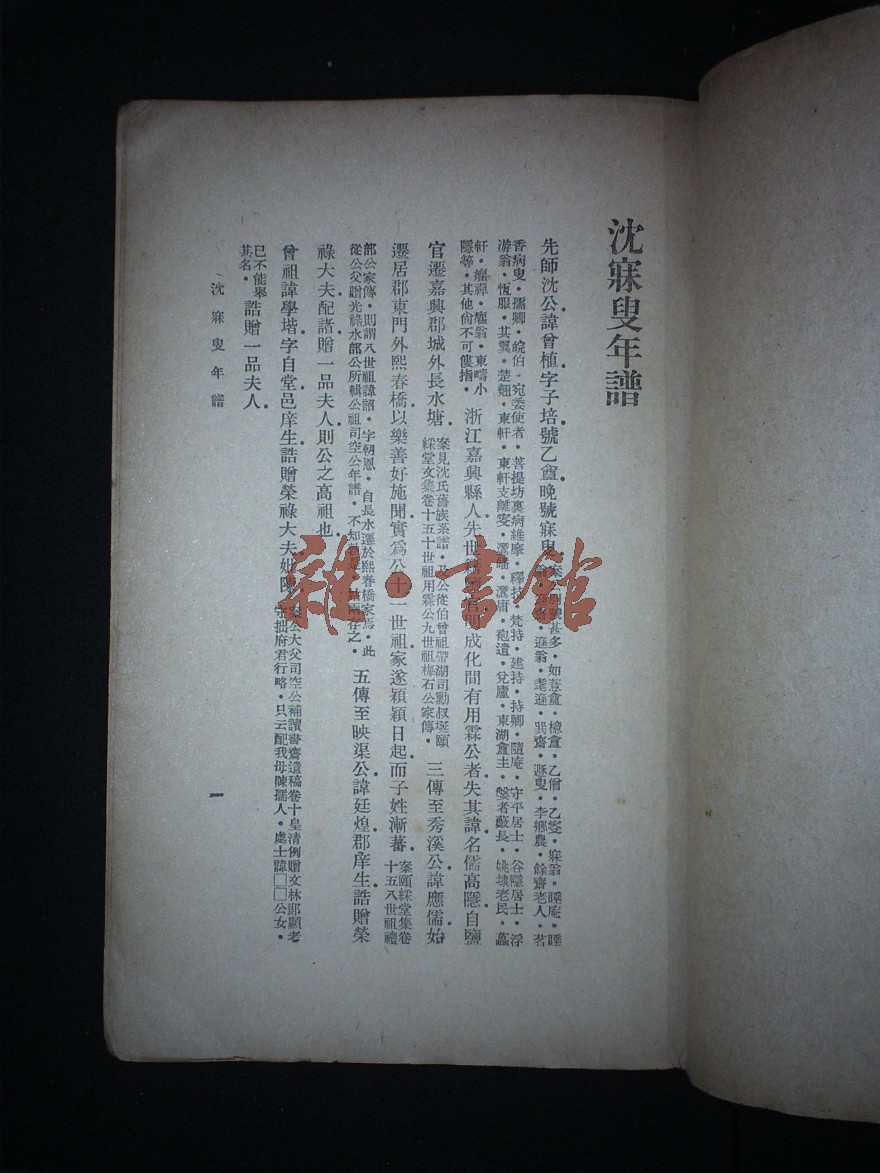 沈寐叟年譜
先師沈公諱曾植字子培號乙盦晚號寐叟
甚多・如薏盦・檍盦・乙僧・乙叟・寐翁・睡庵・睡
遜翁・耄遜・巽齋・遯叟・李鄉農・餘齋老人・茗
香病叟・孺卿・皖伯・宛委使者・菩提坊裏病維摩・釋持・梵持・建持・持卿・隨庵・守平居士・谷隱居士・浮
游翁・恆服・其翼・楚翹・東軒・東軒支離叟・灊皤・灊庸・袍遺・兌廬・東湖盦主・姚埭老民・
軒・癯禪・癯翁・東疇小
隱等・其他尙不可僂指・
浙江嘉興縣人先世明成化間有用霖公者失其諱名儒高隱自鹽
官遷嘉興郡城外長水塘
案見沈氏舊族系譜・及公從伯曾祖帶湖司勳叔埏頤
綵堂文集卷十五十世祖用霖公九世祖梅石公家傳・
三傳至秀溪公諱應儒始
遷居郡東門外熙春橋以樂善好施聞實爲公十一世祖家遂穎穎日起而子姓漸蕃
案頤綵堂集卷
十五八世祖禮
部公家傳・則謂八世祖諱詔・字朝恩・自長水遷於熙春橋家焉・此
從公父贈光祿水部公所輯公祖司空公年譜・不知孰是・兩存之・
五傳至映渠公諱廷煌郡庠生誥贈榮
祿大夫配諸贈一品夫人則公之高祖也
曾祖諱學堦字自堂邑庠生誥贈榮祿大夫妣陳
案公大父司空公補讀書齋遺稿卷十皇淸例贈文林郎顯考
守拙府君行略・只云配我母陳孺人・處士諱□□公女・
已不能舉
其名・
誥贈一品夫人
沈寐叟年譜
一
雜・書館